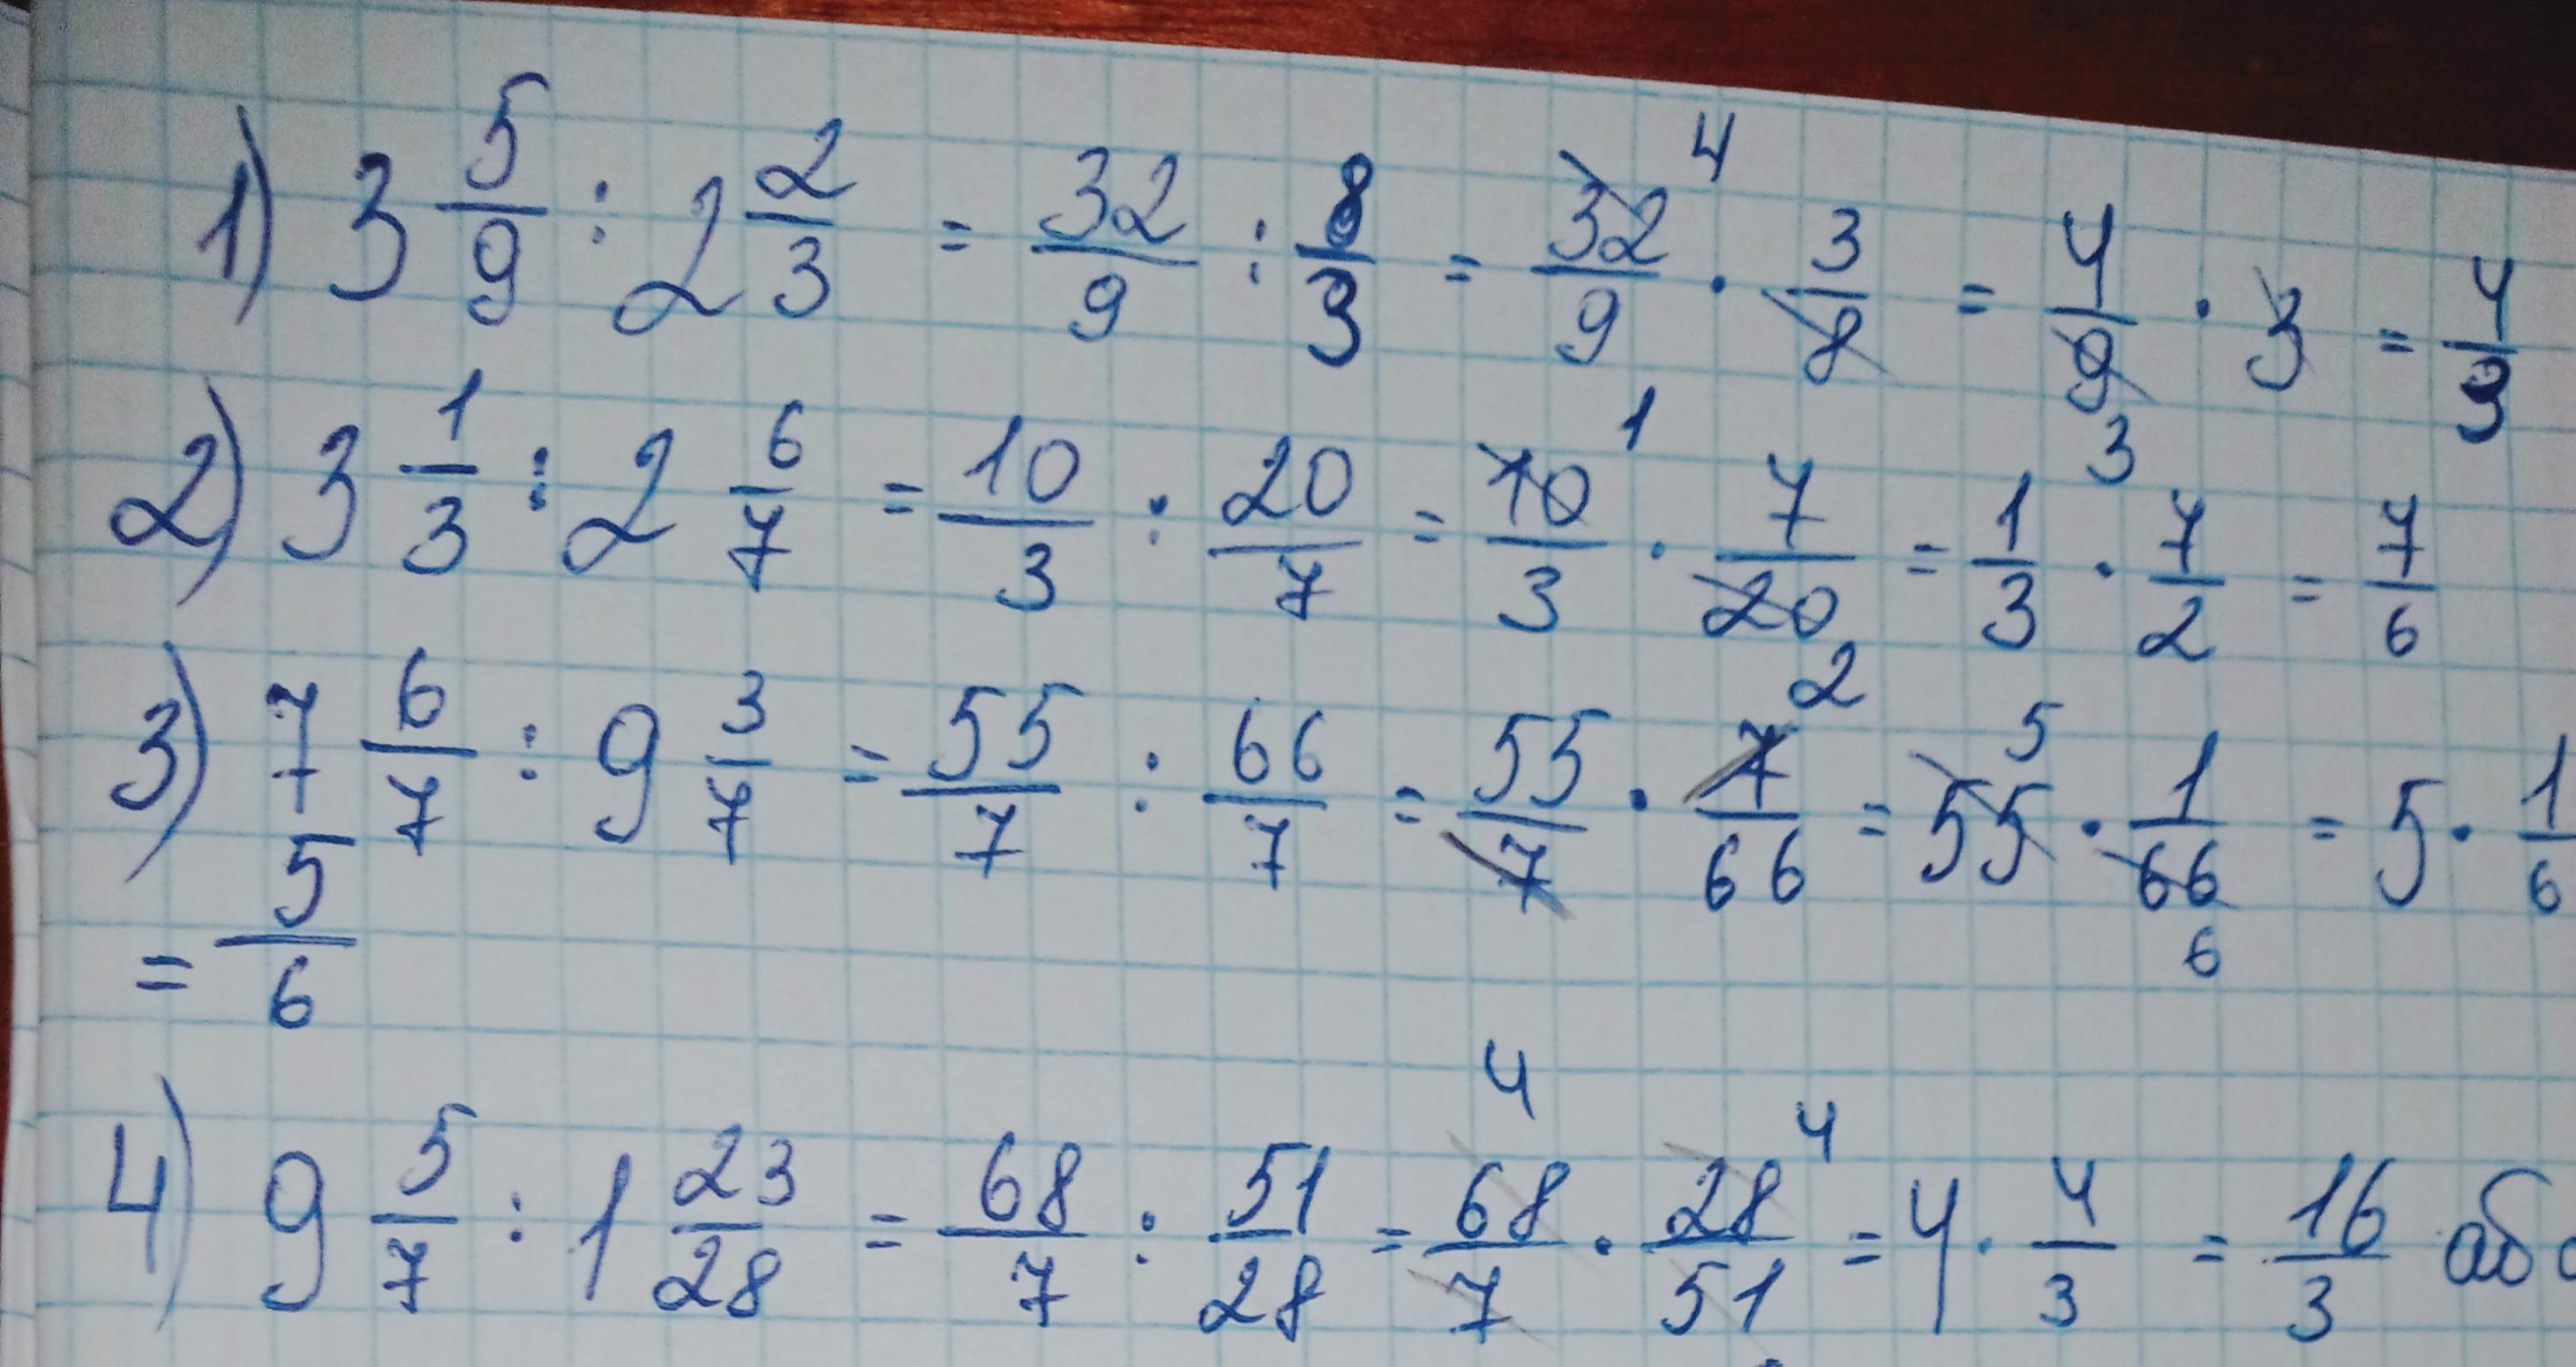 1) 3 5/9 : 2 2/3 = 32/9 : 8/3 = 32/9 4 · 3/8 = 4/9 3 · 3 = 4/3
2) 3 1/3 : 2 6/7 = 10/3 : 20/7 = 10/3 1 · 7/20 2 = 1/3 · 7/2 = 7/6
3) 7 6/7 : 9 3/7 = 55/7 : 66/7 = 55/7 · 7/66 = 55 5 · 1/66 6 = 5 · 1/6
= 5/6
4) 9 5/7 : 1 23/28 = 68/7 : 51/28 = 68/7 4 · 28/51 4 = 4 · 4/3 = 16/3